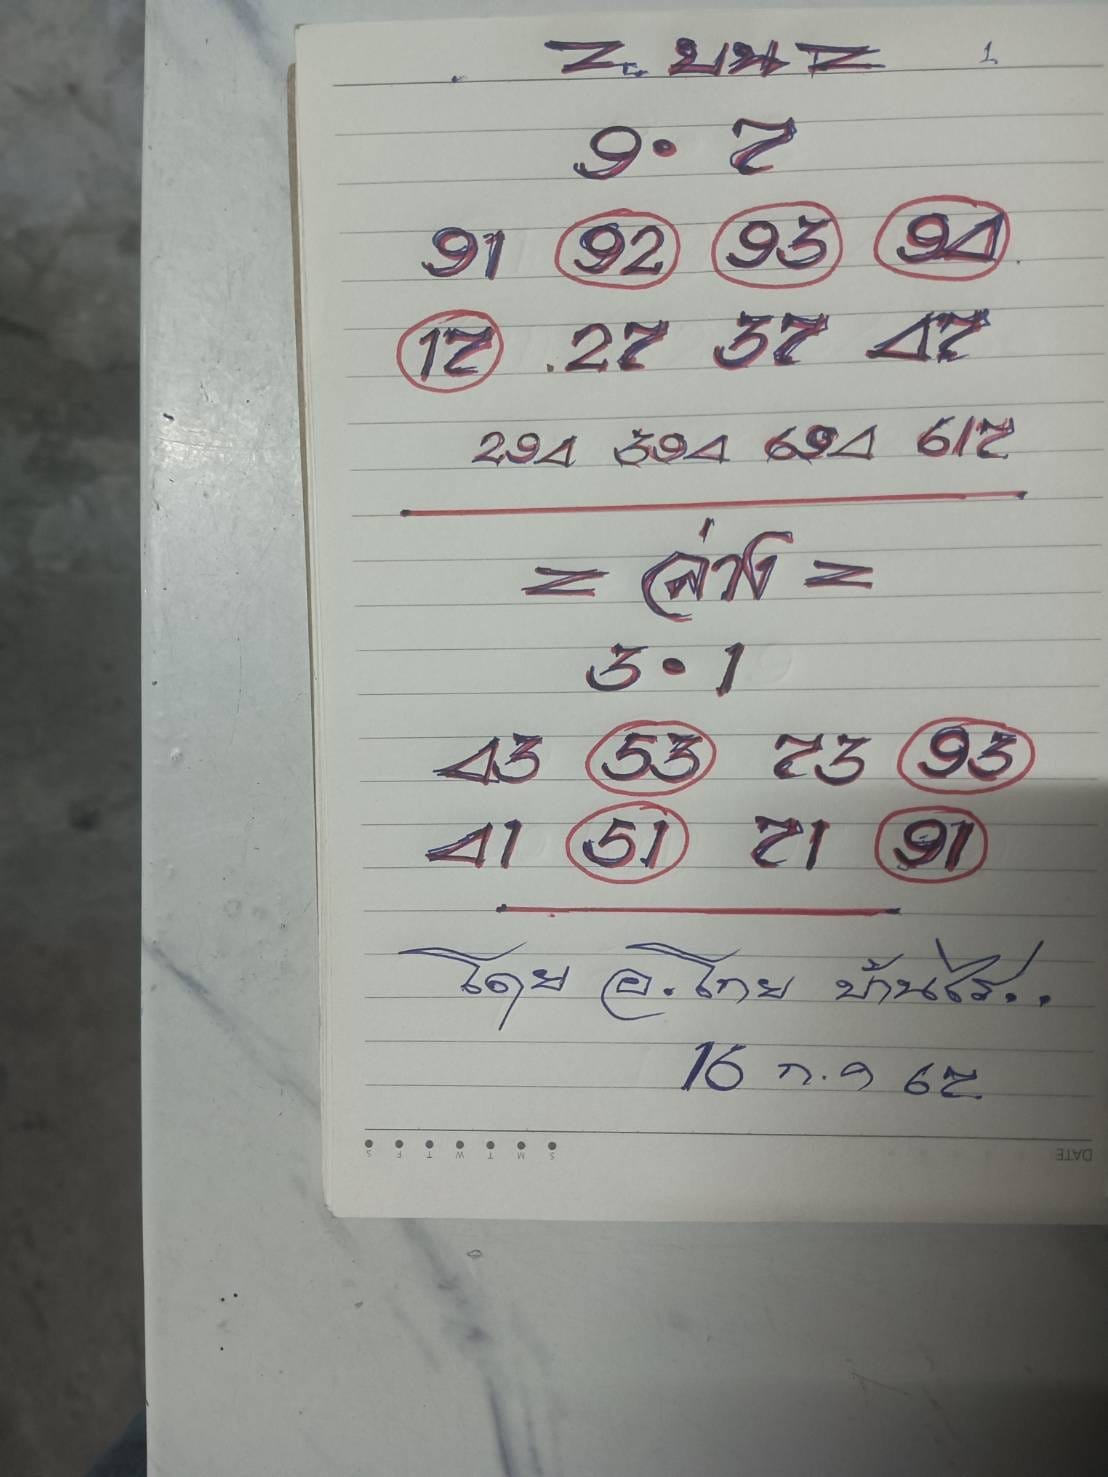 = บน = 1
9 • 7
91 92 93 94
17 27 37 47
294 394 694 617
= ล่าง =
3 • 1
43 53 73 93
41 51 71 91
โดย อ. ไทย บ้านไร่..
16 ก.ค 67
S F T W T M S DATE